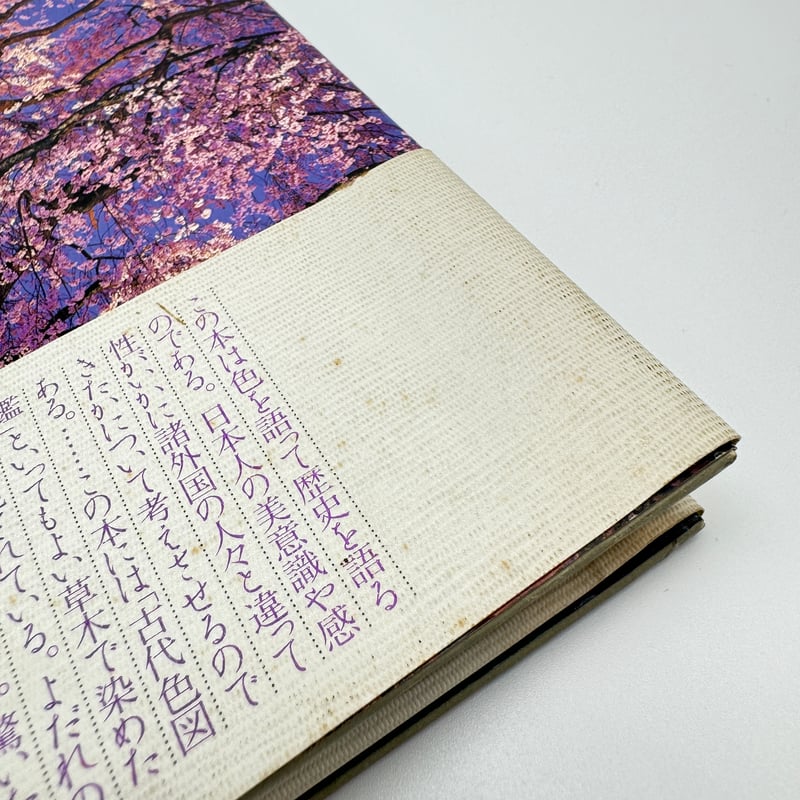 この本は色を語って歴史を語る
のである。日本人の美意識や感
性がいかに諸外国の人々と違って
きたかについて考えさせるので
ある。……この本には「古代色図
鑑」といってもよい草木で染めた
れている。よだれの
。驚いた